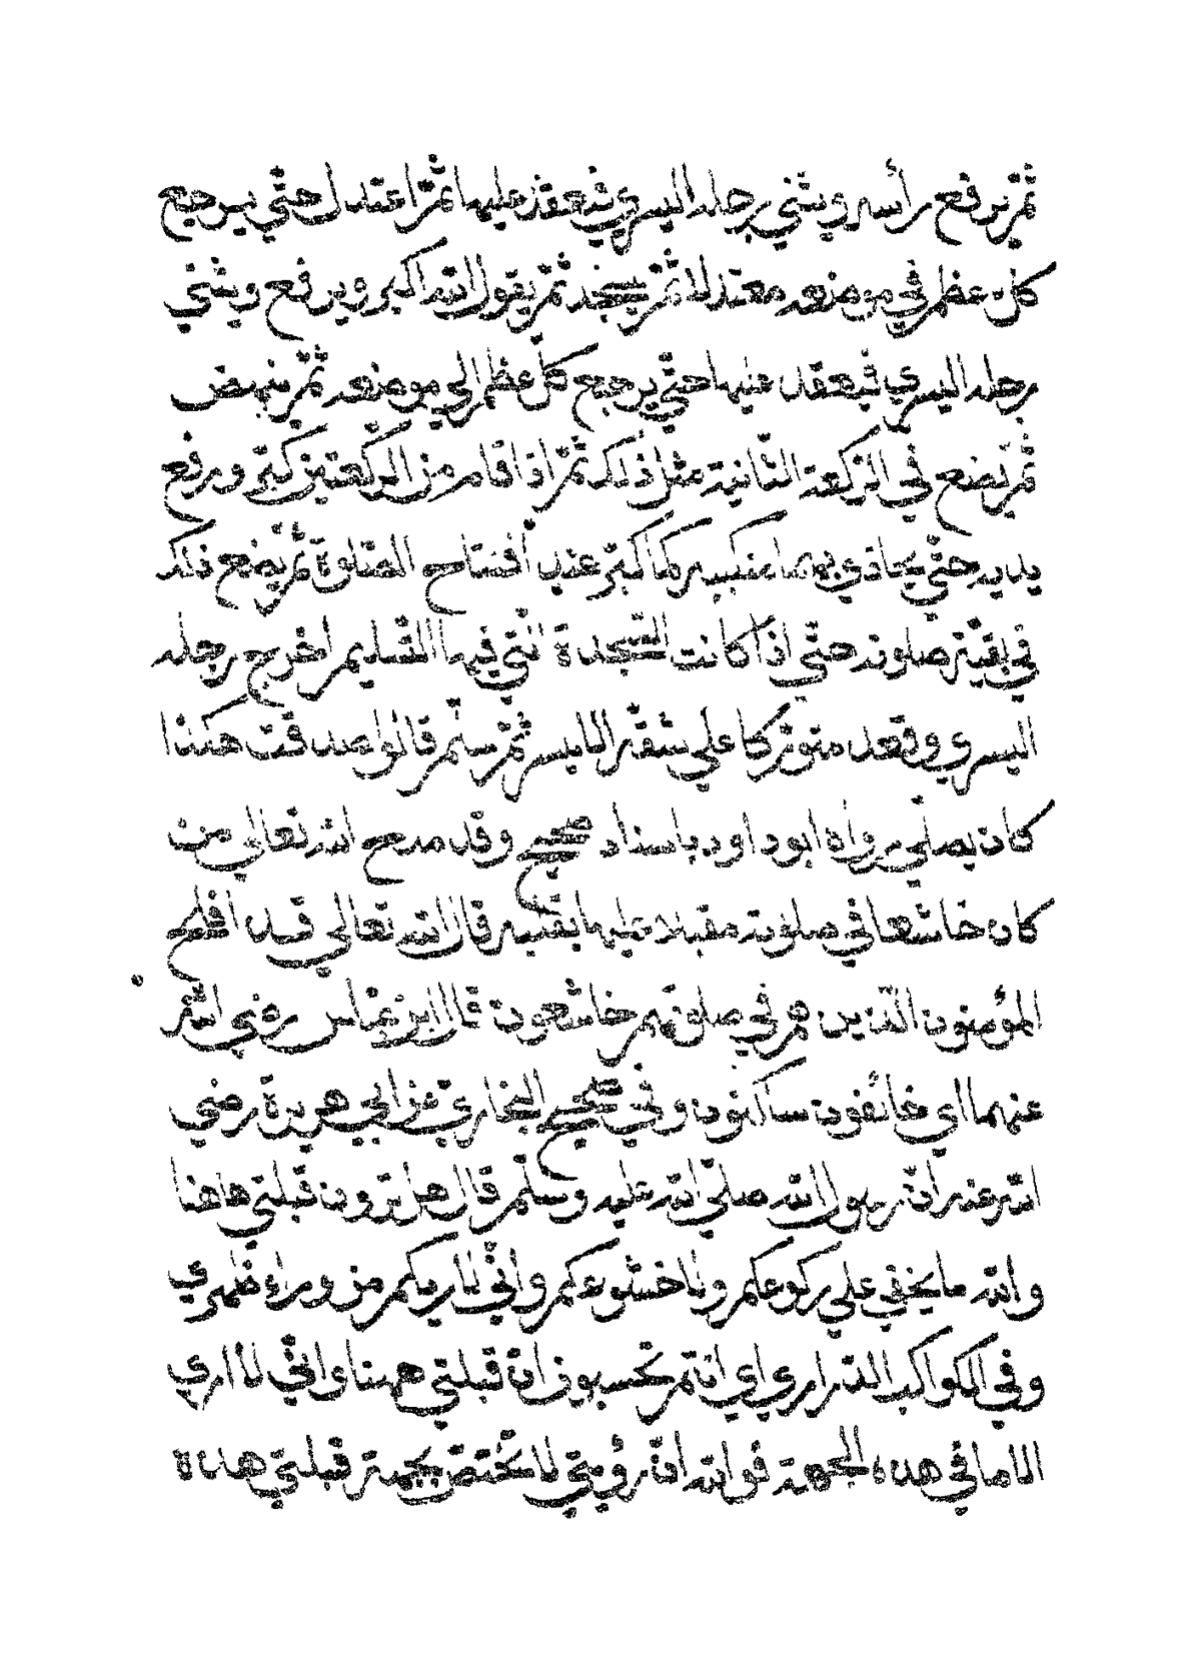 ثمّ يرفع رأسه ويثني رجله اليسري فيقعد عليها ثمّ اعتدل حتّي يرجع
كل عظم في موضعه معتدلا ثمّ يسجد ثمّ يقول الله اكبر ويرفع ويثني
رجله اليسري فيقعد عليها حتّي يرجع كلّ عظم الي موضعه ثمّ ينهض
ثمّ يصنع في الرّكعة الثّانية مثل ذلك ثمّ اذا قام من الرّكعتين كبّر ورفع
يديه حتّي يحاذي بهما منكبيه كما كبّر عند افتتاح الصّلوة ثمّ يصنع ذلك
في بقيّة صلوته حتّي اذا كانت السّجدة الّتي فيها التّسليم اخرج رجله
اليسري وقعد متورّكا علي شقّه الايسر ثمّ سلّم قالوا صدقت هكذا
كان يصلّي رواه ابو داود باسناد صحيح وقد مدح الله تعالي من
كان خاشعا في صلوته مقبلا عليها بقلبه قال الله تعالي قد افلح
المؤمنون الّذين هم في صلوتهم خاشعون قال ابن عبّاس رضي الله
عنهما اي خائفون ساكنون وفي صحيح البخاري عن ابي هريرة رضي
الله عنه انّ رسول الله صلّي الله عليه وسلّم قال هل ترون قبلتي هاهنا
والله ما يخفي علي ركوعكم ولا خشوعكم وانّي لاريكم من وراء ظهري
وفي الكواكب الدّراري اي انتم تحسبون انّ قبلتي ههنا وانّي لا اري
الا ما في هذه الجهة فوالله انّ رؤيتي لا تختصّ بجهة قبلتي هذه